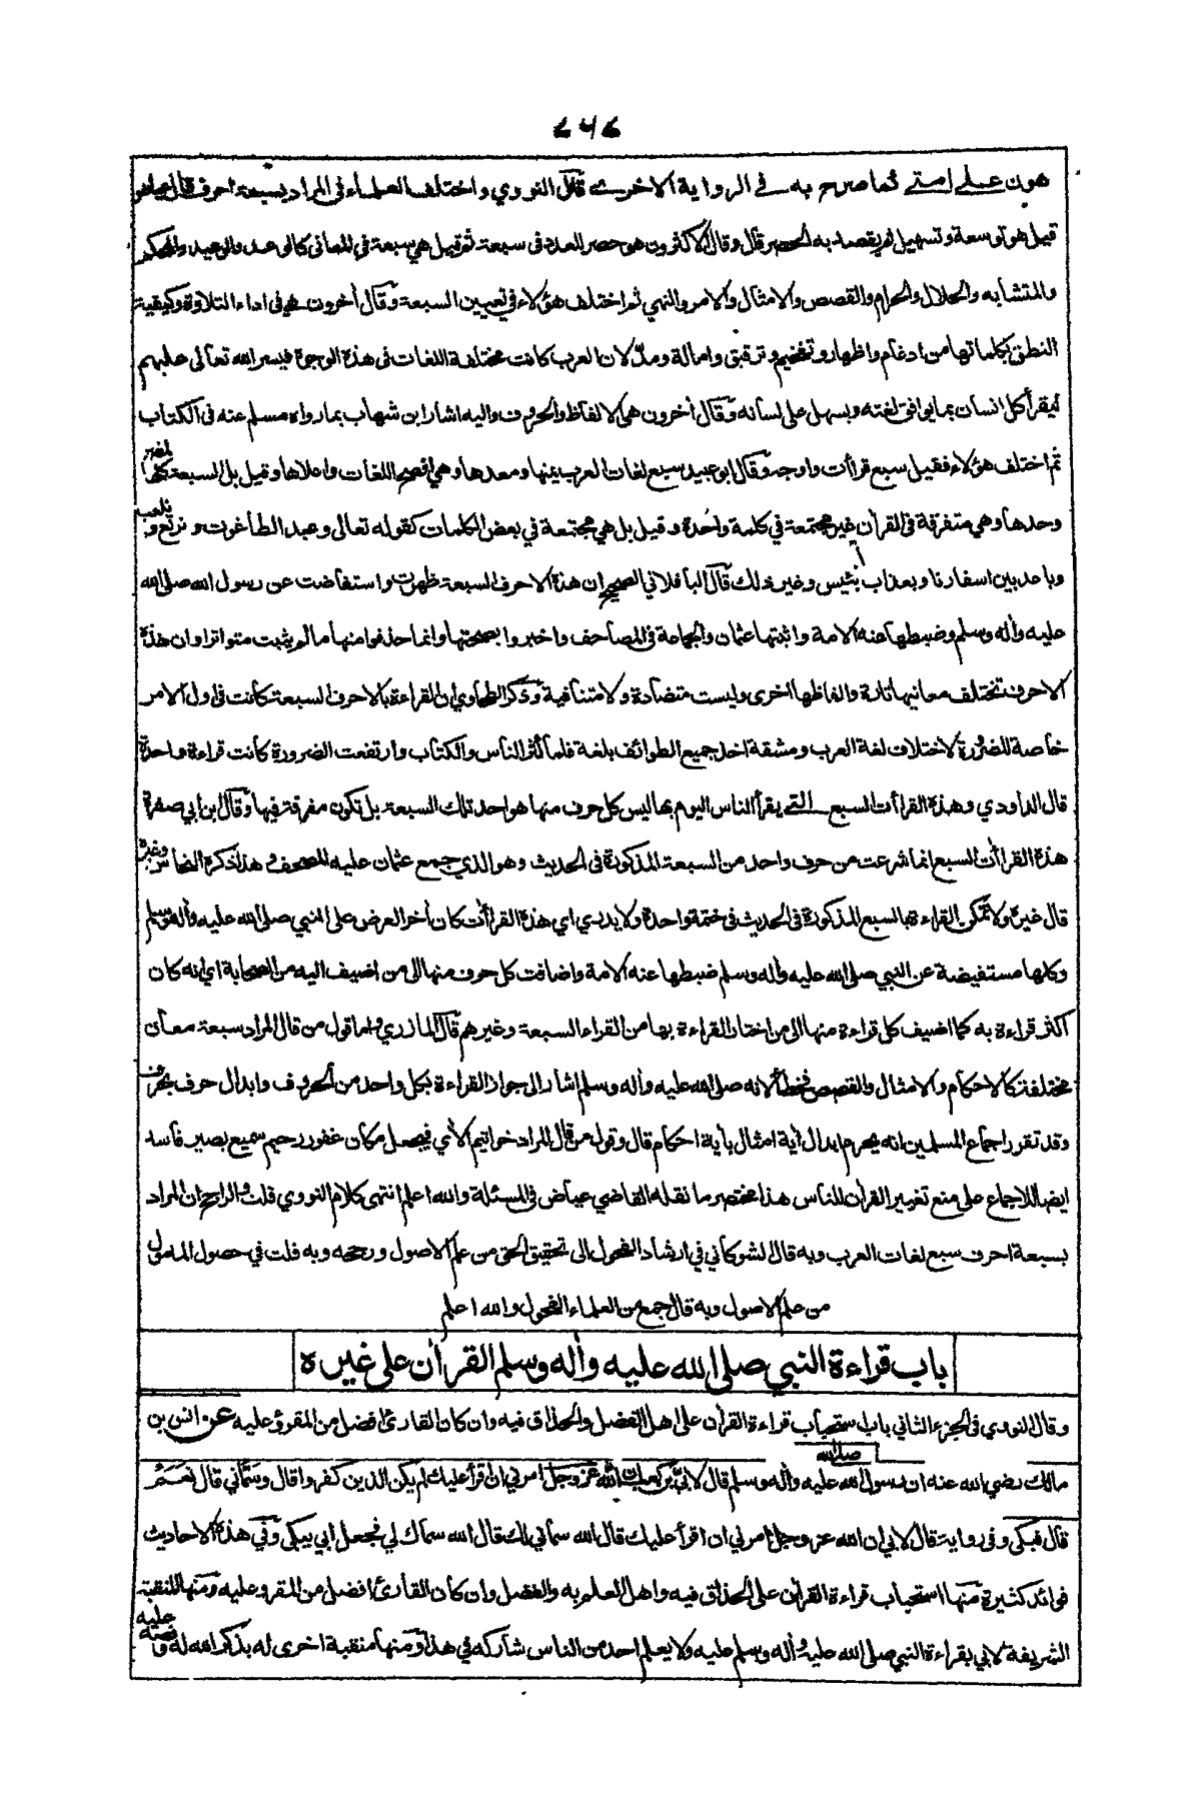 ٧٤٧
هون على امتي كما صرح به في الرواية الاخرى قال النووي واختلف العلماء في المراد بسبعة احرف قال عياض
قيل هو توسعة وتسهيل لم يقصد به الحصر قال وقال الاكثرون هو حصر العدد في سبعة ثم قيل هي سبعة في المعاني كالوعد والوعيد والمحكم
والمتشابه والحلال والحرام والقصص والامثال والامر والنهي ثم اختلف هؤلاء في تعيين السبعة وقال آخرون هي في اداء التلاوة وكيفية
النطق بكلماتها من ادغام واظهار وتفخيم وترقيق وامالة ومد لان العرب كانت مختلفة اللغات في هذه الوجوه فيسر الله تعالى عليهم
ليقرأ كل انسان بما يوافق لغته ويسهل على لسانه وقال آخرون هي الالفاظ والحروف واليه اشار ابن شهاب بما رواه مسلم عنه في الكتاب
ثم اختلف هؤلاء فقيل سبع قراآت واوجه وقال ابو عبيد سبع لغات العرب يمنها ومعدها وهي افصح اللغات واعلاها وقيل بل السبعة كلها لمضر
وحدها وهي متفرقة في القرآن غير مجتمعة في كلمة واحدة وقيل بل هي مجتمعة في بعض الكلمات كقوله تعالى وعبد الطاغوت ونرتع ونلعب
وباعد بين اسفارنا وبعذاب بئيس وغير ذلك قال الباقلاني الصحيح ان هذه الاحرف السبعة ظهرت واستفاضت عن رسول الله صلى الله
عليه وآله وسلم وضبطها عنه الامة واثبتها عثمان والجماعة في المصاحف واخبروا بصحتها وانما حذفوا منها ما لم يثبت متواترا وان هذه
الاحرف تختلف معانيها تارة والفاظها اخرى وليست متضادة ولا متنافية وذكر الطحاوي ان القراءة بالاحرف السبعة كانت في اول الامر
خاصة للضرورة لاختلاف لغة العرب ومشقة اخذ جميع الطوائف بلغة فلما كثر الناس والكتاب وارتفعت الضرورة كانت قراءة واحدة
قال الداودي وهذه القراآت السبع التي يقرأ الناس اليوم بها ليس كل حرف منها هو احد تلك السبعة بل تكون مفرقة فيها وقال ابن ابي صفرة
هذه القراآت السبع انما شرعت من حرف واحد من السبعة المذكورة في الحديث وهو الذي جمع عثمان عليه المصحف وهذا ذكره النحاس وغيره
قال غيره ولا تمكن القراءة بالسبع المذكورة في الحديث في ختمة واحدة ولا يدري اي هذه القراآت كان آخر العرض على النبي صلى الله عليه وآله وسلم
وكلها مستفيضة عن النبي صلى الله عليه وآله وسلم ضبطها عنه الامة واضافت كل حرف منها الى من اضيف اليه من الصحابة اي انه كان
اكثر قراءة به كما اضيف كل قراءة منها الى من اختار القراءة بها من القراء السبعة وغيرهم قال المازري واما قول من قال المراد سبعة معان
مختلفة كالاحكام والامثال والقصص فخطأ لانه صلى الله عليه وآله وسلم اشار الى جواز القراءة بكل واحد من الحروف وابدال حرف بحرف
وقد تقرر اجماع المسلمين انه يحرم ابدال آية امثال بآية احكام قال وقول من قال المراد خواتيم الآي فيجعل مكان غفور رحيم سميع بصير فاسد
ايضا للاجماع على منع تغيير القرآن للناس هذا مختصر ما نقله القاضي عياض في المسئلة والله اعلم انتهى كلام النووي قلت والراجح ان المراد
بسبعة احرف سبع لغات العرب وبه قال الشوكاني في ارشاد الفحول الى تحقيق الحق من علم الاصول ورجحه وبه قلت في حصول المأمول
من علم الاصول وبه قال جمع من العلماء الفحول والله اعلم
باب قراءة النبي صلى الله عليه وآله وسلم القرآن على غيره
وقال النووي في الجزء الثاني باب استحباب قراءة القرآن على اهل الفضل والحذاق فيه وان كان القارئ افضل من المقروء عليه عن انس بن
مالك رضي الله عنه ان رسول الله صلى الله عليه وآله وسلم قال لابي بن كعب ان الله عز وجل امرني ان اقرأ عليك لم يكن الذين كفروا قال وسماني قال نعم
قال فبكى وفي رواية قال لابي ان الله عز وجل امرني ان اقرأ عليك قال الله سماني لك قال الله سماك لي فجعل ابي يبكي وفي هذه الاحاديث
فوائد كثيرة منها استحباب قراءة القرآن على الحذاق فيه واهل العلم به والفضل وان كان القارئ افضل من المقرو عليه ومنها المنقبة
الشريفة لابي بقراءة النبي صلى الله عليه وآله وسلم عليه ولا يعلم احد من الناس شاركه في هذا ومنها منقبة اخرى له بذكر الله له و